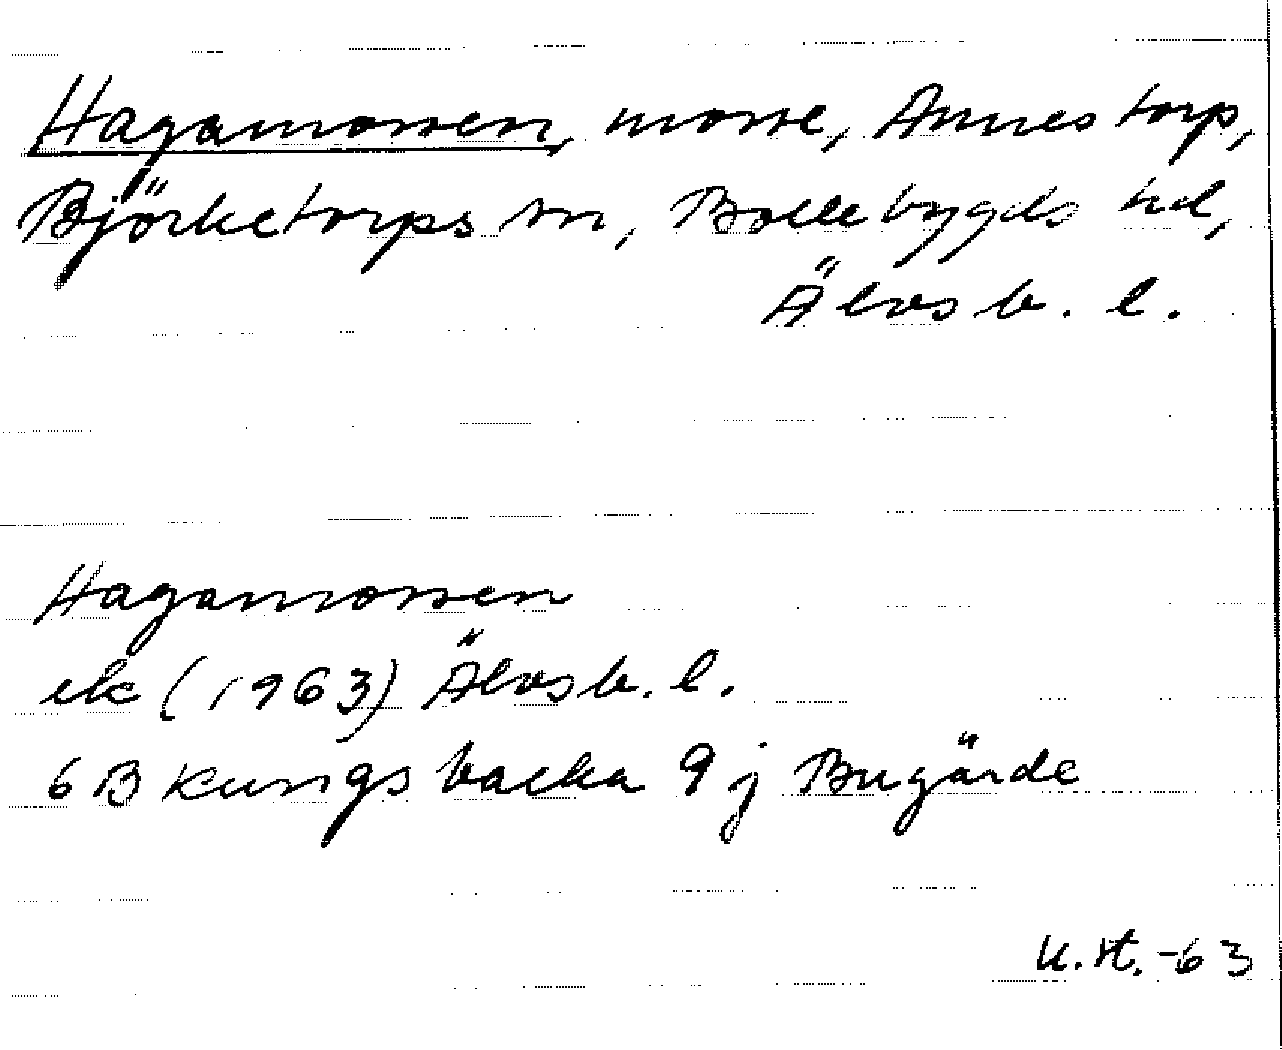 Hagamossen, mosse, Annestorp,
Björketorps sn, Bollebygds hd,
Älvsb. l.
Hagamossen
ek (1963) Älvsb. l.
6 B Kungsbacka 9 j Bugärde
K.H. -63